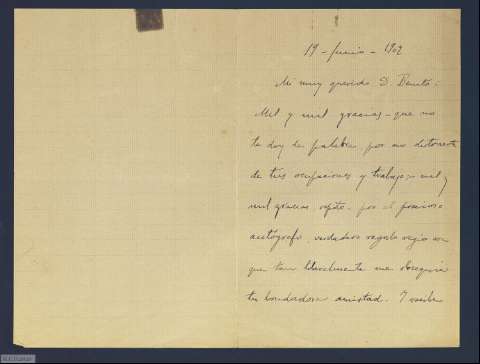 19 - Junio - 1902
Mi muy querido D. Benito:
Mil y mil gracias - que no
te doy de palabra por no distraerte
de tus ocupaciones y trabajos - mil y
mil gracias, repito - por el precioso
autógrafo, verdadero regalo regio con
que tan literalmente me obsequia
tu bondadosa amistad. Y recibe